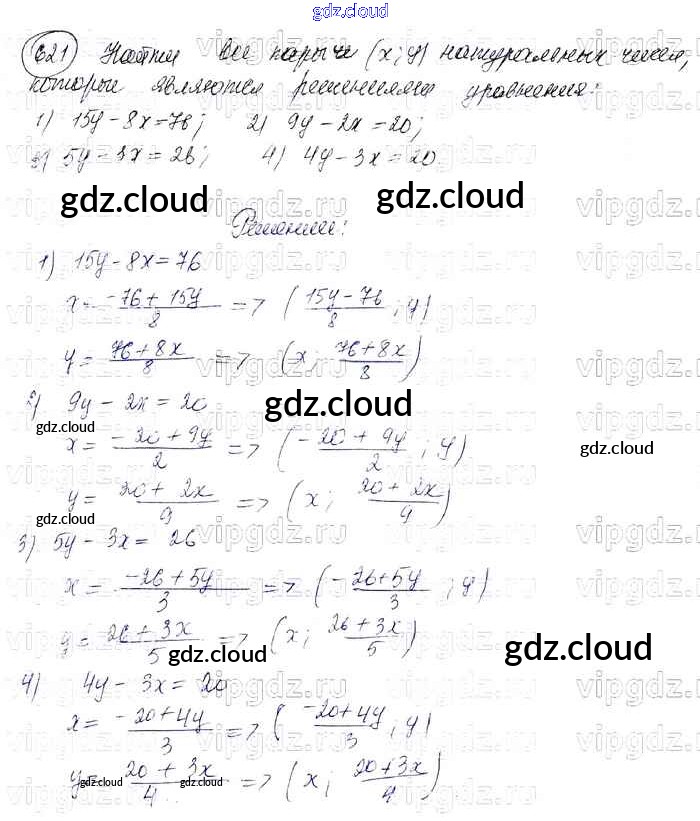 gdz.cloud
621 Найти все пары (x; y) натуральных чисел,
которые являются решениями уравнения:
1) 15y - 8x = 76; 2) 9y - 2x = 20;
3) 5y - 3x = 26; 4) 4y - 3x = 20.
gdz.cloud gdz.cloud
Решение:
1) 15y - 8x = 76
x = (-76 + 15y)/8 => ((15y - 76)/8; y)
y = (76 + 8x)/8 => (x; (76 + 8x)/8)
2) 9y - 2x = 20
gdz.cloud gdz.cloud
x = (-20 + 9y)/2 => ((-20 + 9y)/2; y)
gdz.cloud
y = (20 + 2x)/9 => (x; (20 + 2x)/9)
gdz.cloud
3) 5y - 3x = 26
x = (-26 + 5y)/3 => ((-26 + 5y)/3; y)
y = (26 + 3x)/5 => (x; (26 + 3x)/5)
gdz.cloud
4) 4y - 3x = 20
x = (-20 + 4y)/3 => ((-20 + 4y)/3; y)
y = (20 + 3x)/4 => (x; (20 + 3x)/4)
gdz.cloud gdz.cloud